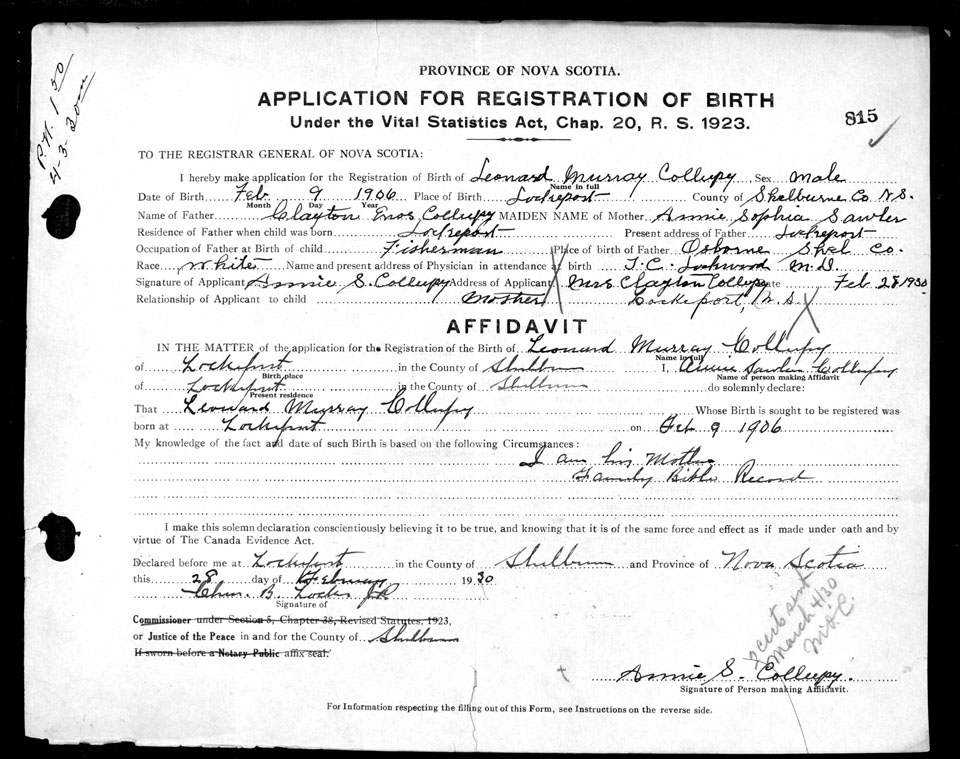 PROVINCE OF NOVA SCOTIA.
APPLICATION FOR REGISTRATION OF BIRTH
Under the Vital Statistics Act, Chap. 20, R. S. 1923.
815
P.N. 1 30
4-3-30
TO THE REGISTRAR GENERAL OF NOVA SCOTIA:
I hereby make application for the Registration of Birth of Leonard Murray Collupy Sex male
Name in full
Date of Birth Feb 9 1906 Place of Birth Lockeport County of Shelburne Co N.S.
Month Day Year
Name of Father Clayton Enos Collupy MAIDEN NAME of Mother Annie Sophia Sawler
Residence of Father when child was born Lockeport Present address of Father Lockeport
Occupation of Father at Birth of child Fisherman Place of birth of Father Osborne Shel Co.
Race White Name and present address of Physician in attendance at birth T. C. Lockwood M.D.
Signature of Applicant Annie S. Collupy Address of Applicant Mrs Clayton Collupy Date Feb 28 1930
Relationship of Applicant to child Mother Lockeport, N.S.
AFFIDAVIT
IN THE MATTER of the application for the Registration of the Birth of Leonard Murray Collupy
Name in full
of Lockeport in the County of Shelburne I, Annie Sawler Collupy
Birth place Name of person making Affidavit
of Lockeport in the County of Shelburne do solemnly declare:
Present residence
That Leonard Murray Collupy Whose Birth is sought to be registered was
born at Lockeport on Feb 9 1906
My knowledge of the fact and date of such Birth is based on the following Circumstances:
I am his Mother
Family Bible Record
I make this solemn declaration conscientiously believing it to be true, and knowing that it is of the same force and effect as if made under oath and by
virtue of The Canada Evidence Act.
Declared before me at Lockeport in the County of Shelburne and Province of Nova Scotia
this 28 day of February 1930
Chas. B. Locke JP
Signature of
Commissioner under Section 5, Chapter 38, Revised Statutes, 1923,
or Justice of the Peace in and for the County of Shelburne
If sworn before a Notary Public affix seal.
cert sent
March 4/30
Annie S. Collupy.
Signature of Person making Affidavit.
For Information respecting the filling out of this Form, see Instructions on the reverse side.